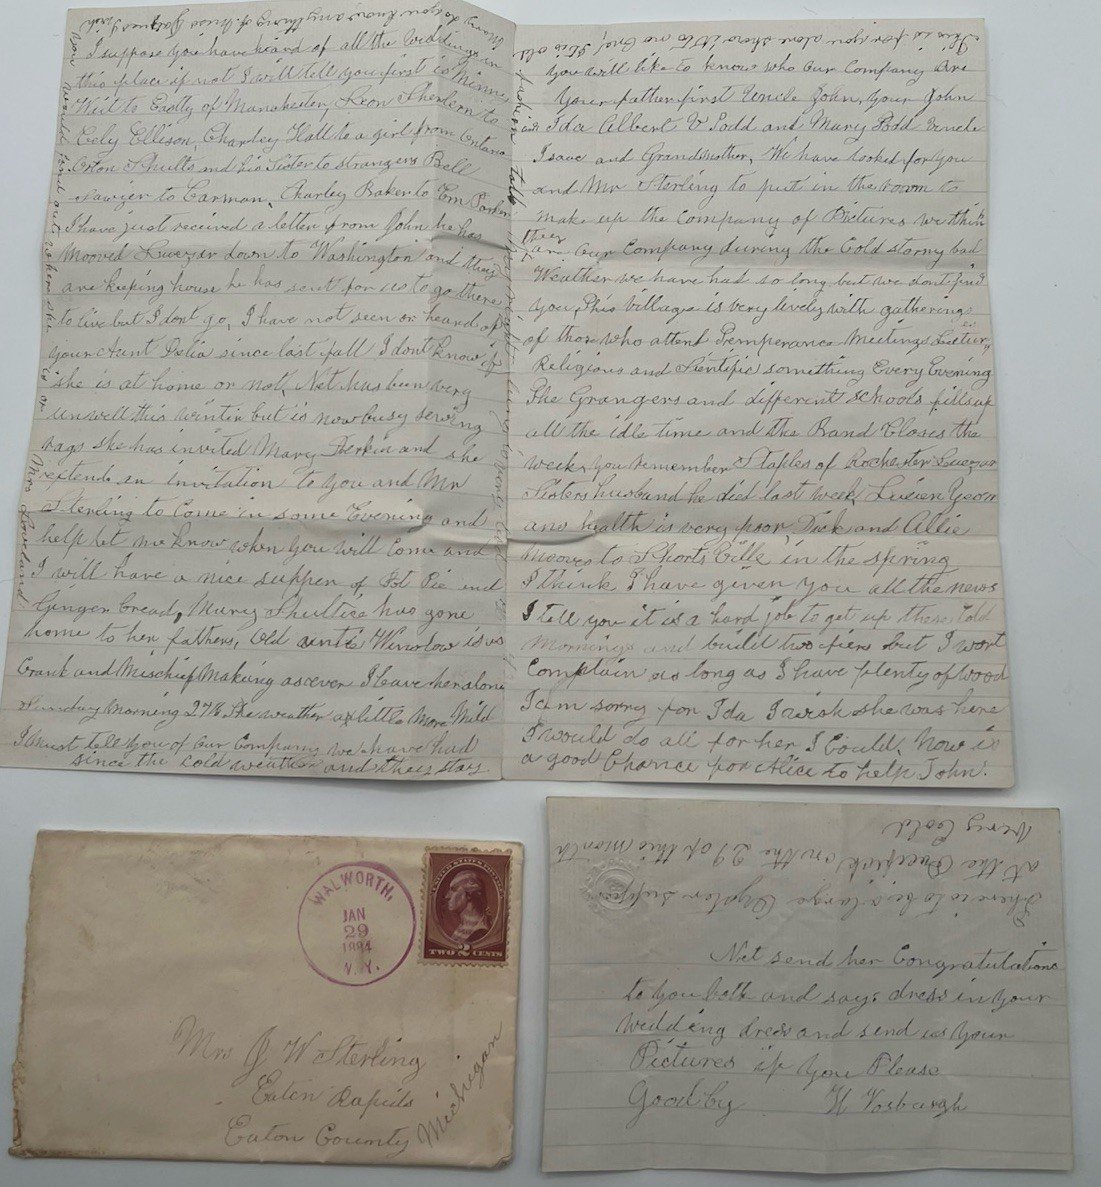 I suppose you have heard of all the weddings in
this place if not I will tell you first is Minnie
Wilt to Crolty of Manchester, Leon Sherburn to
Ellison, Charley Hall to a girl from Ontario
Orton Shults and his Sister to strangers Bell
Sawyer to Carman, Charley Baker to Em Parker
I have just received a letter from John he has
Mooved down to Washington and they
are keeping house he has sent for us to go there
to live but I dont go, I have not seen or heard of
your Aunt Delia since last fall I dont know if
she is at home or not, Net has been very
unwell this winter but is now busy sewing
rags she has invited Mary and she
extends an invitation to you and Mr
Sterling to Come in some Evening and
help let me know when you will Come and
I will have a nice supper of Pot Pie and
Ginger bread, Mary Shultice has gone
home to her fathers, old Winslow is as
Crank and Mischief Making as ever I leave her alone
Sunday Morning 27th the weather a little More Mild
I Must tell you of our Company we have had
since the cold weather and they stay
you know anything of Miss
now would find out where she is or
Miss Loveland
This is for you alone
fashion talk
You will like to know who our Company are
Your father first Uncle John, your John
Ida Albert V Todd and Mary Todd Uncle
Isaac and Grandmother, We have looked for you
and Mr Sterling to put in the room to
make up the Company of Pictures we think
they
are our Company during the Cold stormy bad
Weather we have had so long but we dont find
you, This village is very lively with gatherings
of those who attend Temperance Meetings
Religious and Sientific something Every Evening
The Grangers and different schools fills up
all the idle time and the Band Closes the
week, you remember Staples of Rochester
Sisters husband he died last week, Lucien Yeom
ans health is very poor, Dick and Allie
Mooves to Sports Ville in the spring
I think I have given you all the news
I tell you it is a hard job to get up these cold
Mornings and build two fiers but I wont
Complain as long as I have plenty of wood
I am sorry for Ida I wish she was here
I would do all for her I Could, Now is
a good Chance for Alice to help John.
WALWORTH,
JAN
29
1884
N.Y.
UNITED STATES POSTAGE
TWO 2 CENTS
Mrs J W Sterling
Eaton Rapids
Eaton County
Michigan
There is to be a large Oyster supper
at the on the 29 of this month
Very Cold
Net send her Congratulations
to you both and says dress in your
wedding dress and send us your
Pictures if you Please
Goodby H Vosburgh